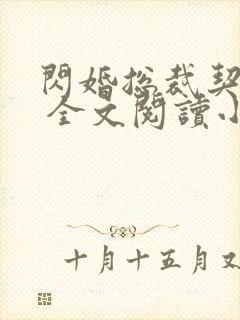 閃婚总裁契
全文閱讀小
十月十五月又